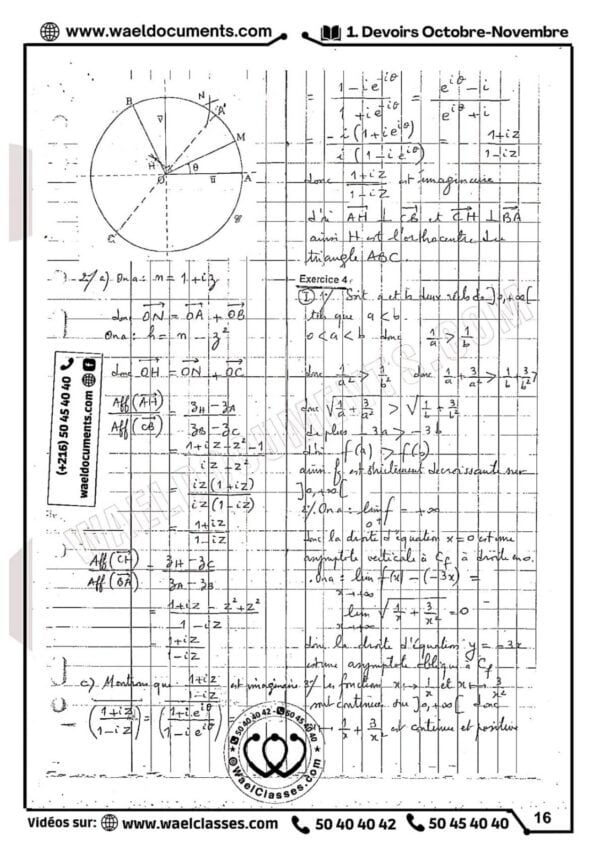 www.waeldocuments.com
1. Devoirs Octobre-Novembre
N
B
A'
M
v
H
θ
O
u
A
C
2/ a) On a : n = 1 + iz
donc ON = OA + OB
On a : h = n - z²
donc OH = ON + OC
Aff(AH) / Aff(CB) = (zH - zA) / (zB - zC)
= (1 + iz - z² - 1) / (iz - z²)
= iz(1+iz) / iz(1-iz)
= (1+iz) / (1-iz)
Aff(CH) / Aff(BA) = (zH - zC) / (zA - zB)
= (1+iz - z² + z²) / (1 - iz)
= (1+iz) / (1-iz)
c) Montrons que (1+iz) / (1-iz) est imaginaire
((1+iz) / (1-iz)) = ((1+ie^iθ) / (1-ie^iθ)) =
= (1-ie^-iθ) / (1+ie^-iθ) = (e^iθ - i) / (e^iθ + i)
= -i(1+ie^iθ) / i(1-ie^iθ) = - (1+iz) / (1-iz)
donc (1+iz) / (1-iz) est imaginaire
d'où AH ⊥ CB et CH ⊥ BA
ainsi H est l'orthocentre du
triangle ABC.
Exercice 4
I 1/ Soit a et b deux réels de ]0,+∞[
tels que a < b.
0 < a < b donc 1/a > 1/b
donc 1/a² > 1/b² donc 1/a + 3/a² > 1/b + 3/b²
donc √(1/a + 3/a²) > √(1/b + 3/b²)
de plus -3a > -3b
d'où f(a) > f(b)
ainsi f est strictement décroissante sur
]0,+∞[
2/ On a : lim f = +∞
0+
donc la droite d'équation x = 0 est une
asymptote verticale à Cf à droite en 0.
. On a : lim f(x) - (-3x) =
x→+∞
lim √(1/x + 3/x²) = 0
x→+∞
donc la droite d'équation y = -3x
est une asymptote oblique à Cf
3/ Les fonctions x ↦ 1/x et x ↦ 3/x²
sont continues sur ]0,+∞[ donc
x ↦ 1/x + 3/x² est continue et positive
(+216) 50 45 40 40
waeldocuments.com
WAELDOCUMENTS.COM
50 40 40 42 - 50 45 40 40
WaelClasses.com
16
Vidéos sur: www.waelclasses.com 50 40 40 42 50 45 40 40